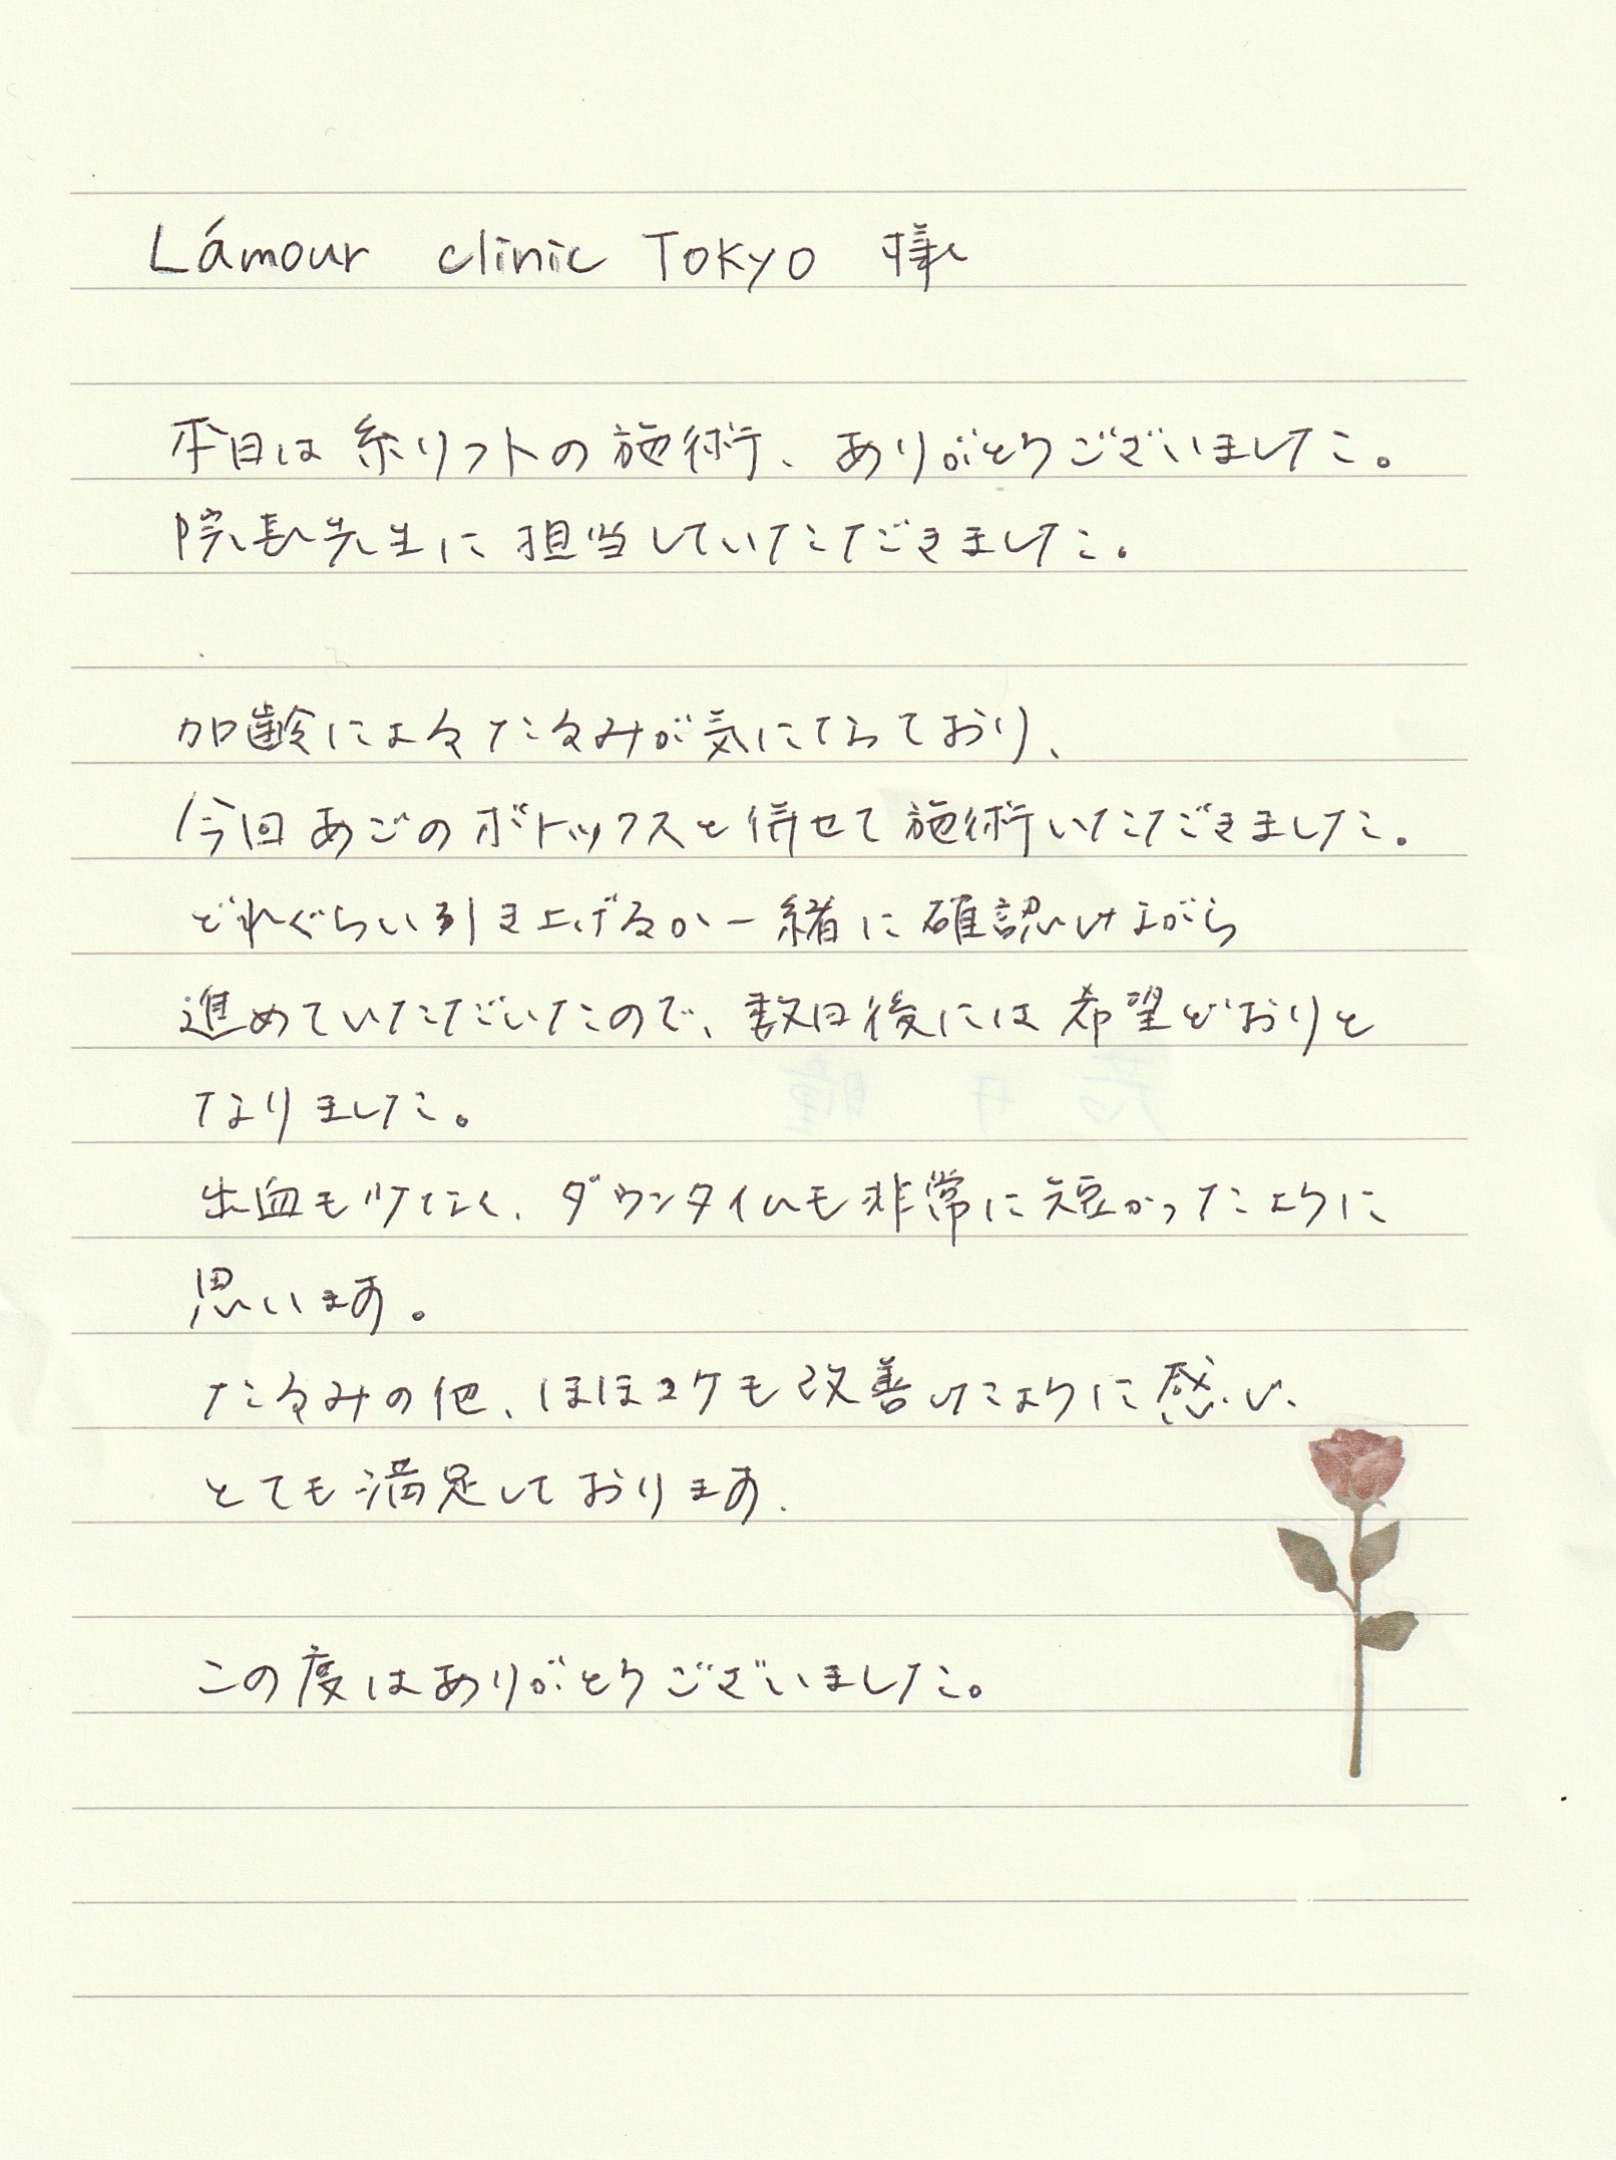 Lámour clinic Tokyo 様
本日は糸リフトの施術、ありがとうございました。
院長先生に担当していただきました。
加齢によるたるみが気になっており、
今回あごのボトックスと併せて施術いただきました。
どれぐらい引き上げるか一緒に確認しながら
進めていただいたので、数日後には希望どおりと
なりました。
出血も少なく、ダウンタイムも非常に短かったように
思います。
たるみの他、ほほコケも改善したように感じ、
とても満足しております.
この度はありがとうございました。